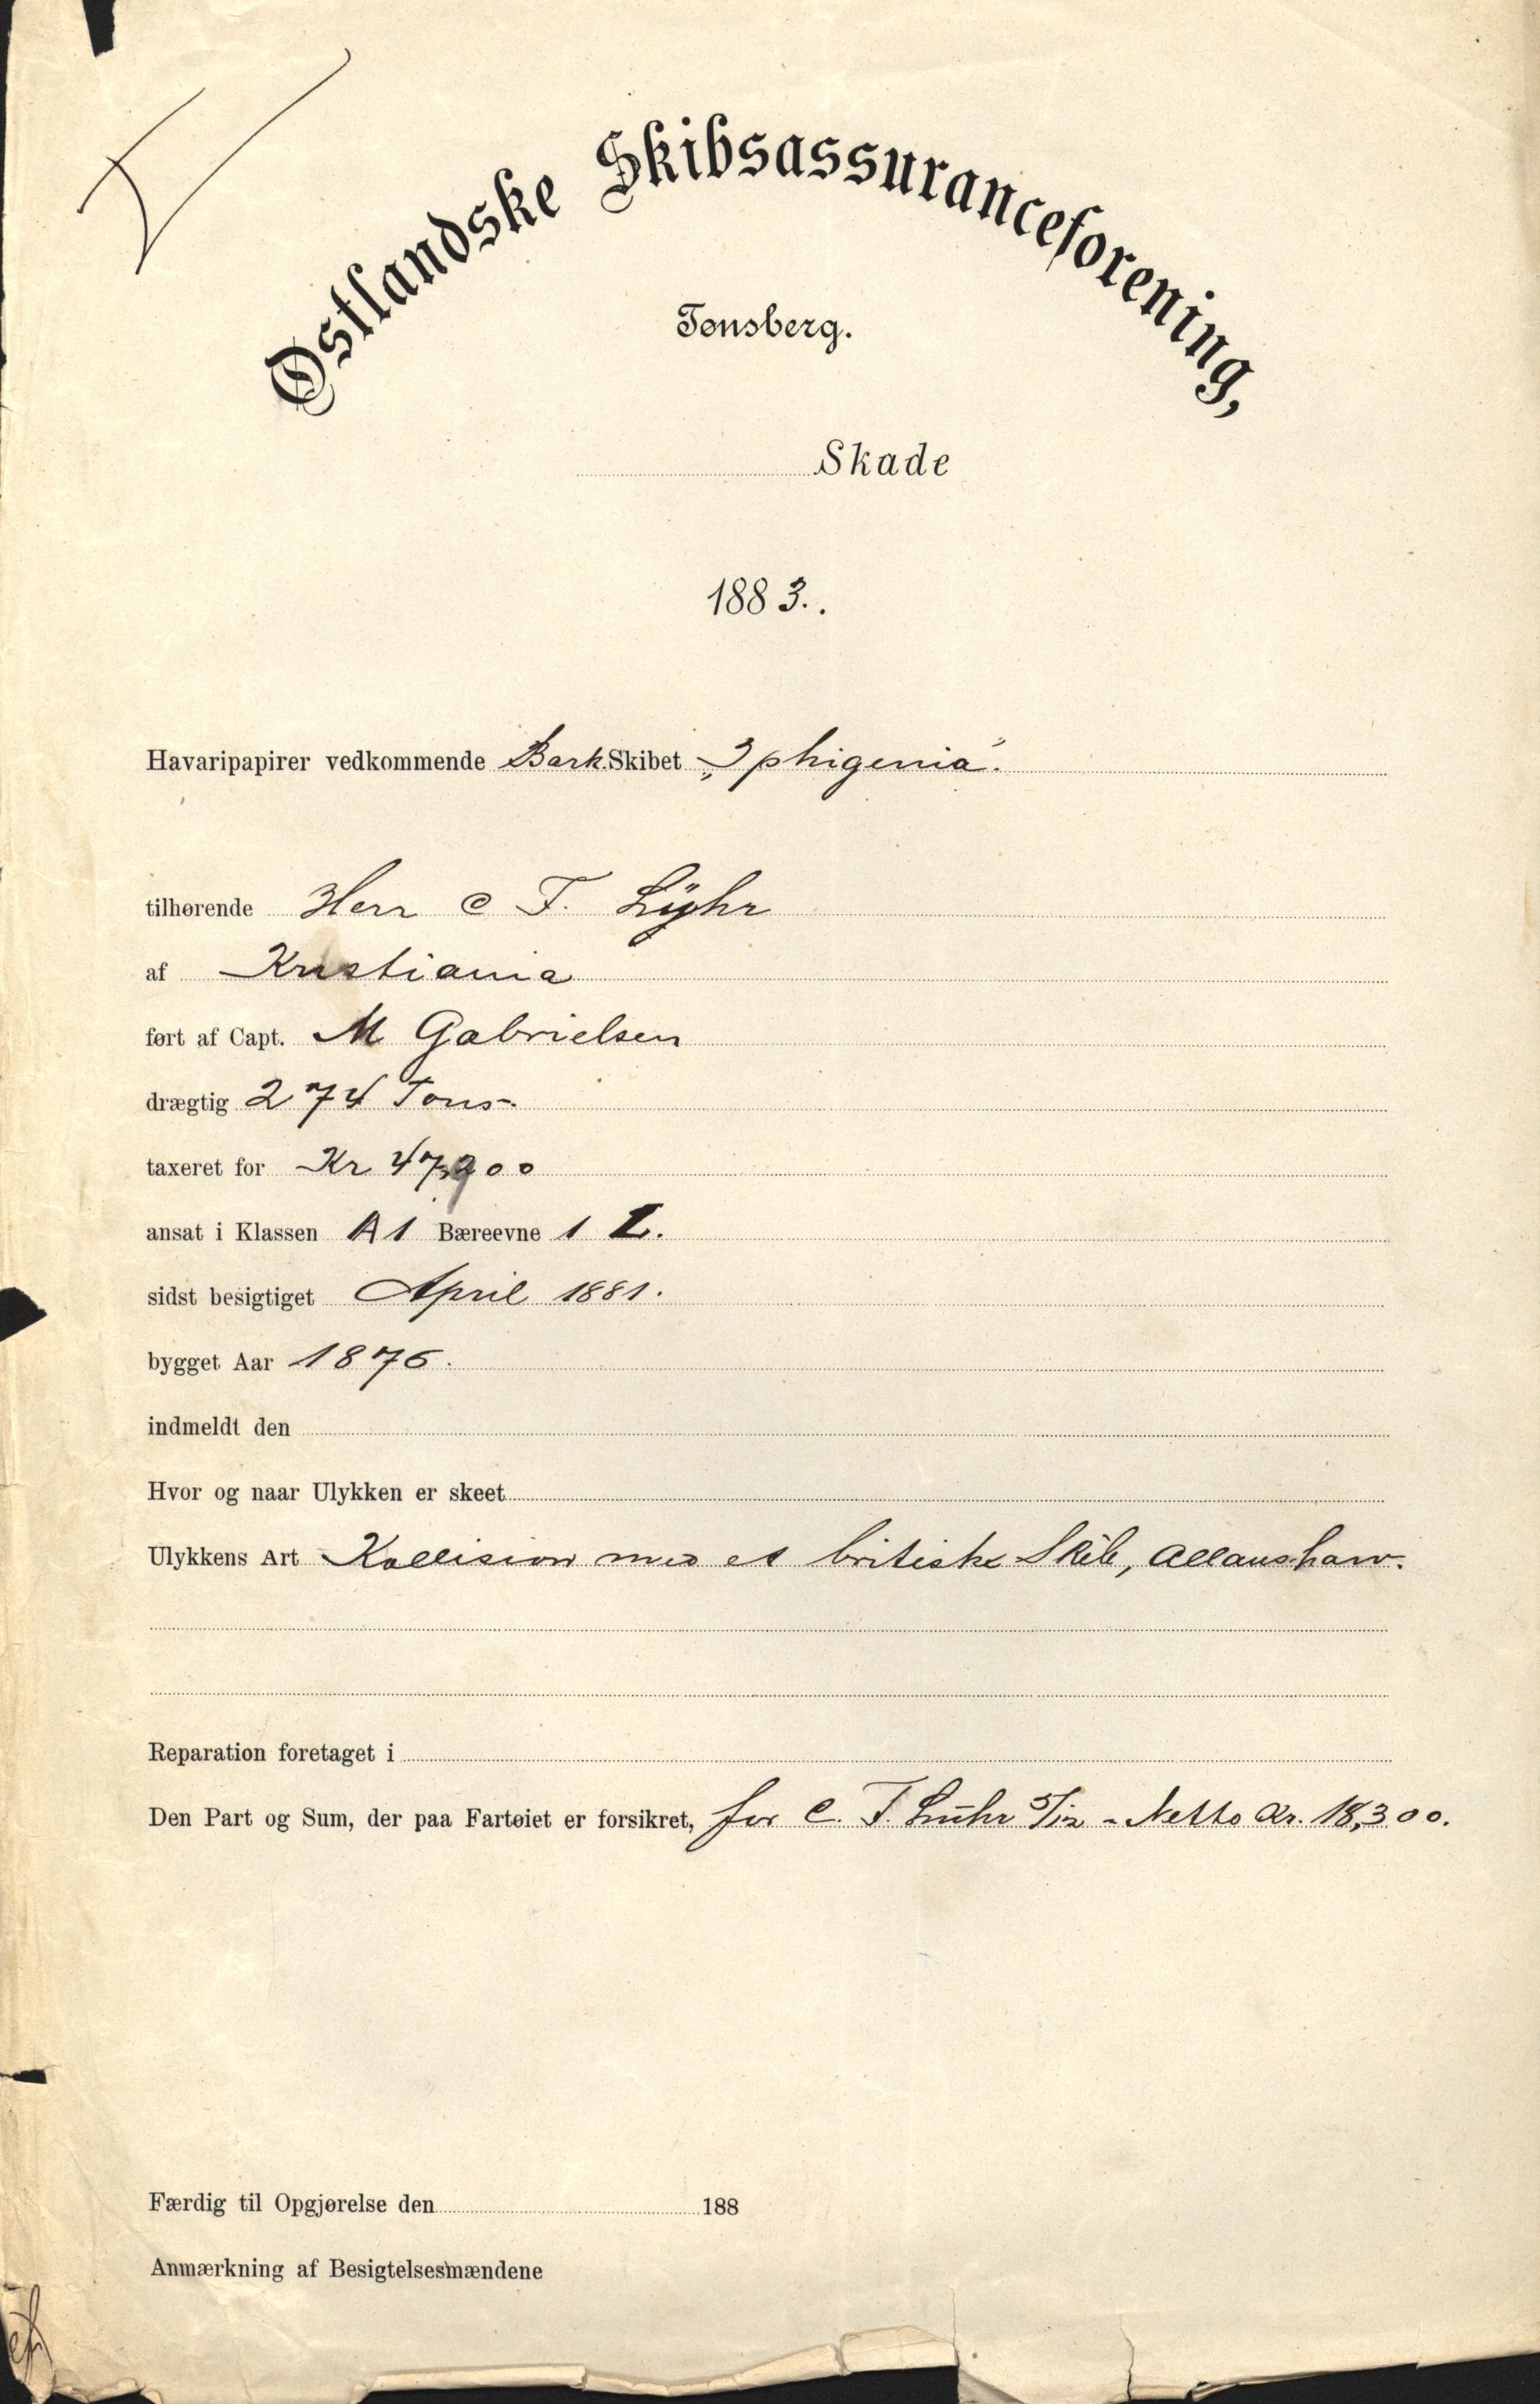 Østlandske Skibsassuranceforening,
Tønsberg.
Skade
1883.
Havaripapirer vedkommende Bark Skibet „Iphigenia“.
tilhørende Herr C F. Lühr
af Kristiania
ført af Capt. M Gabrielsen
drægtig 274 Tons.
taxeret for Kr 47,900
ansat i Klassen A1 Bæreevne 1 I.
sidst besigtiget April 1881.
bygget Aar 1876.
indmeldt den
Hvor og naar Ulykken er skeet
Ulykkens Art Kollision med et britiske Skib, Allanshaw.
Reparation foretaget i
Den Part og Sum, der paa Fartøiet er forsikret, for C. F. Lühr 5/12 - Netto Kr. 18,300.
Færdig til Opgjørelse den 188
Anmærkning af Besigtelsesmændene